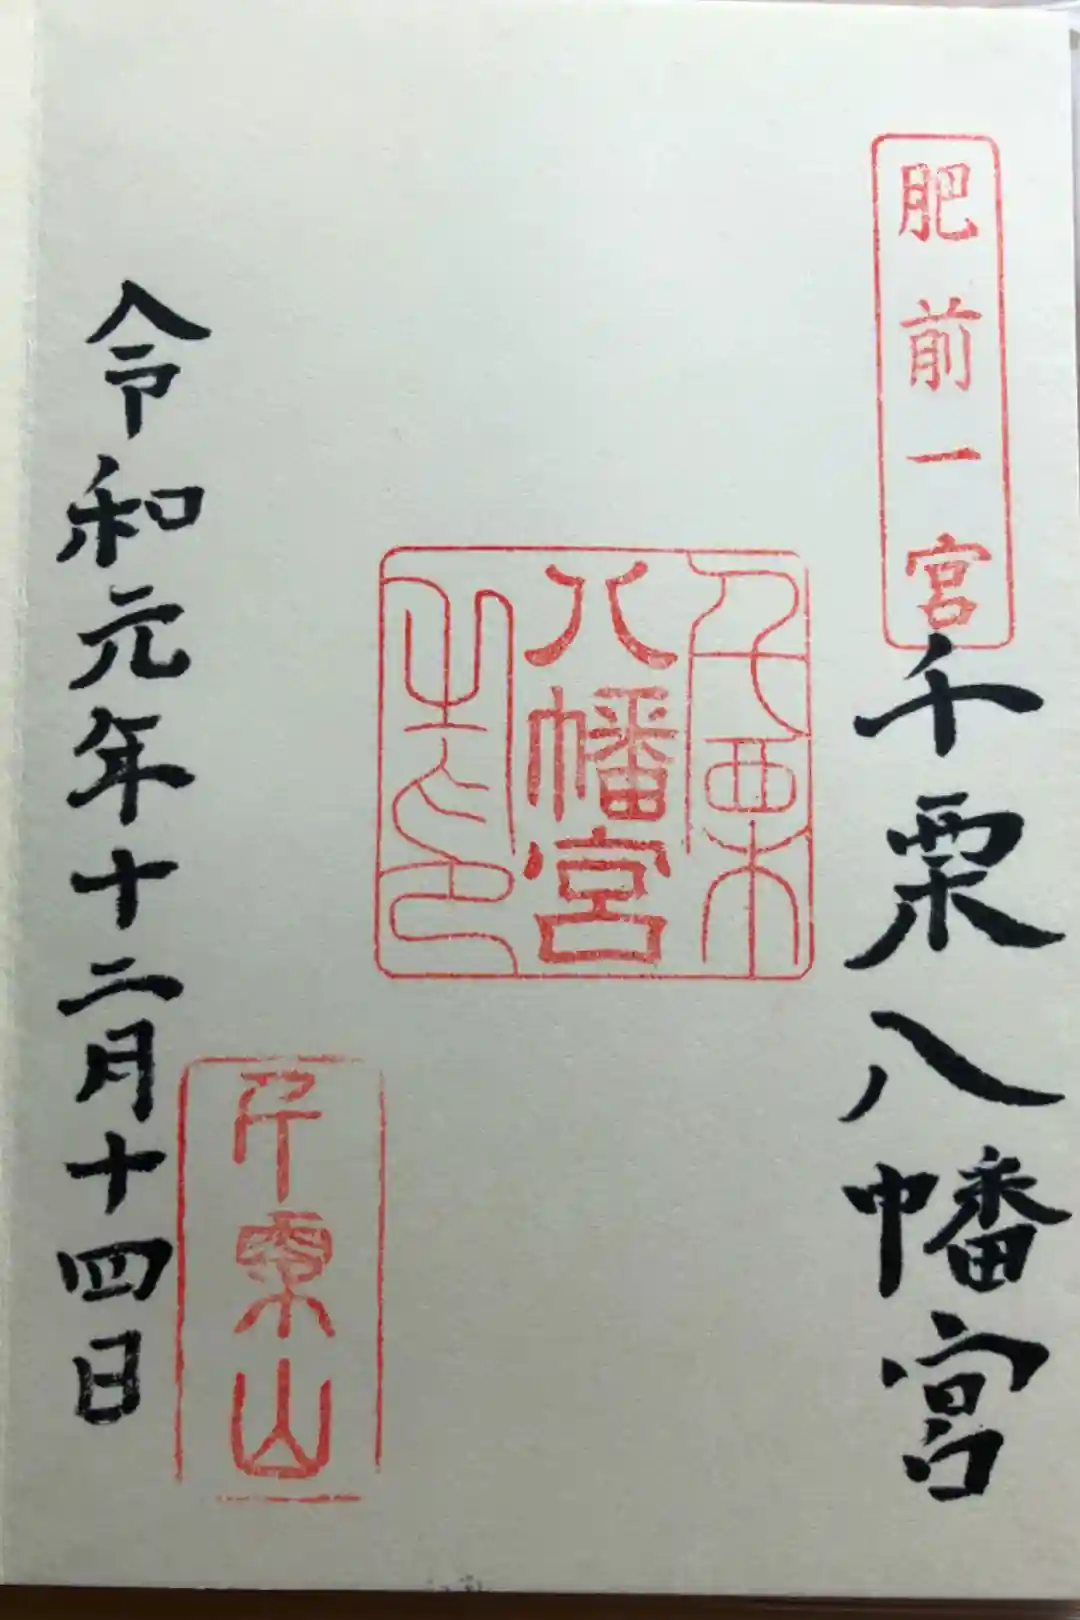 肥前一宮
千栗八幡宮
千栗八幡宮之印
千栗山
令和元年十二月十四日